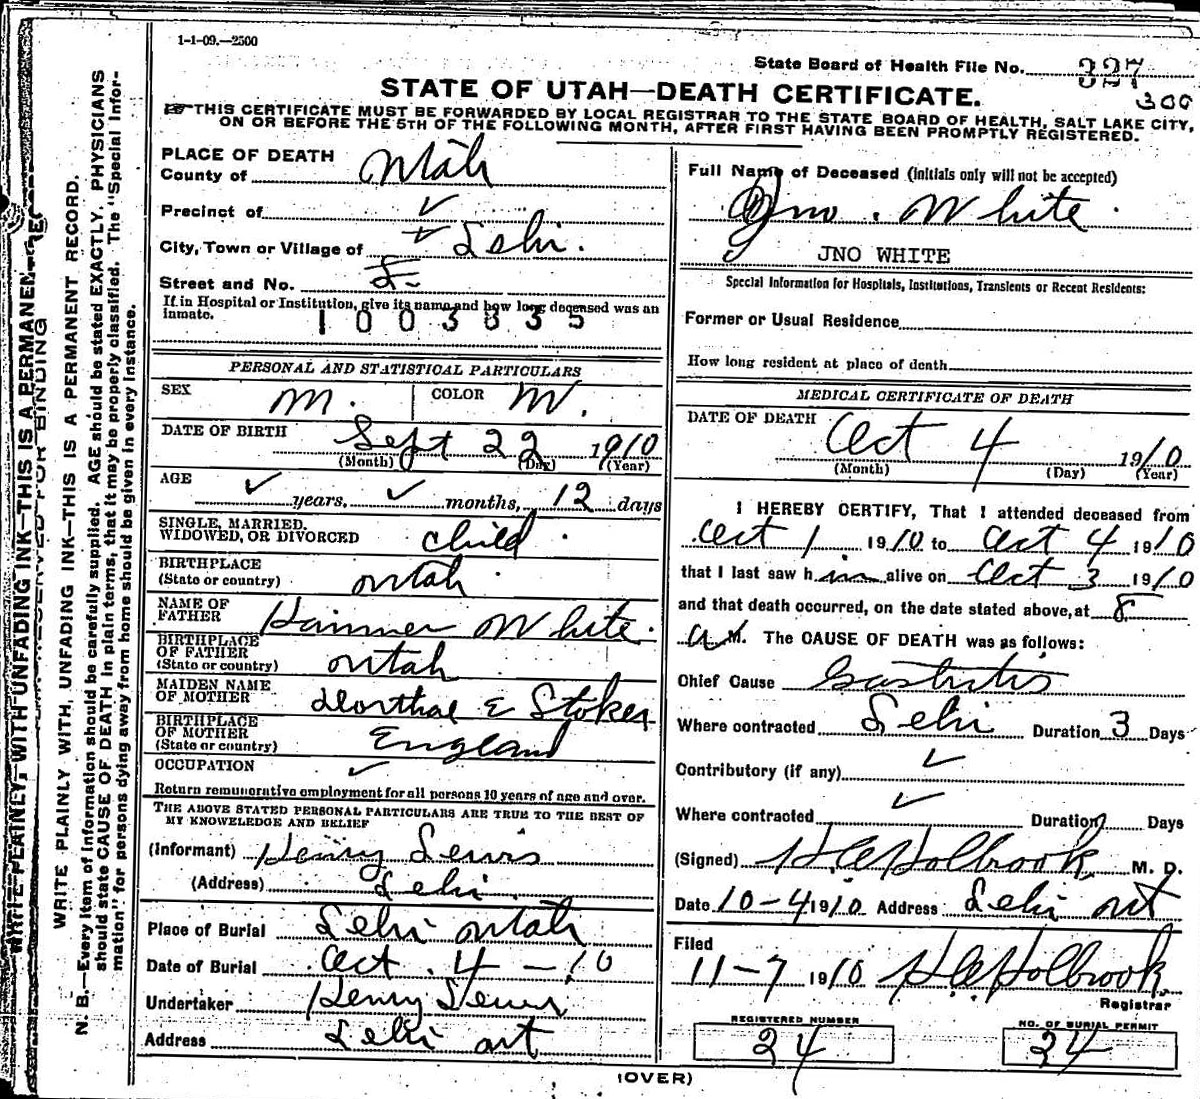 1-1-09.—2500
State Board of Health File No. 327
300
STATE OF UTAH—DEATH CERTIFICATE.
THIS CERTIFICATE MUST BE FORWARDED BY LOCAL REGISTRAR TO THE STATE BOARD OF HEALTH, SALT LAKE CITY,
ON OR BEFORE THE 5TH OF THE FOLLOWING MONTH, AFTER FIRST HAVING BEEN PROMPTLY REGISTERED.
PLACE OF DEATH
County of Utah
Precinct of ✓
City, Town or Village of Lehi.
Street and No.
If in Hospital or Institution, give its name and how long deceased was an
inmate.
1003635
PERSONAL AND STATISTICAL PARTICULARS
SEX M. COLOR W.
DATE OF BIRTH Sept 22 1910
(Month) (Day) (Year)
AGE ✓ years, ✓ months, 12 days
SINGLE, MARRIED,
WIDOWED, OR DIVORCED child.
BIRTHPLACE
(State or country) Utah
NAME OF
FATHER Hammer White.
BIRTHPLACE
OF FATHER
(State or country) Utah
MAIDEN NAME
OF MOTHER E Stoker
BIRTHPLACE
OF MOTHER
(State or country) England
OCCUPATION ✓
Return remunerative employment for all persons 10 years of age and over.
THE ABOVE STATED PERSONAL PARTICULARS ARE TRUE TO THE BEST OF
MY KNOWLEDGE AND BELIEF
(Informant) Henry Lewis
(Address) Lehi
Place of Burial Lehi Utah
Date of Burial Oct. 4-10
Undertaker Henry Lewis
Address Lehi Ut
Full Name of Deceased (initials only will not be accepted)
Jno. White.
JNO WHITE
Special Information for Hospitals, Institutions, Transients or Recent Residents:
Former or Usual Residence
How long resident at place of death
MEDICAL CERTIFICATE OF DEATH
DATE OF DEATH Oct 4 1910
(Month) (Day) (Year)
I HEREBY CERTIFY, That I attended deceased from
Oct 1 1910 to Oct 4 1910
that I last saw him alive on Oct 3 1910
and that death occurred, on the date stated above, at 8
a M. The CAUSE OF DEATH was as follows:
Chief Cause Gastritis
Where contracted Lehi Duration 3 Days
Contributory (if any) ✓
Where contracted ✓ Duration Days
(Signed) H E Holbrook M. D.
Date 10-4 1910 Address Lehi Ut
Filed
11-7 1910 H E Holbrook
Registrar
REGISTERED NUMBER
24
NO. OF BURIAL PERMIT
24
(OVER)
WRITE PLAINLY WITH, UNFADING INK—THIS IS A PERMANENT RECORD.
N. B.—Every item of information should be carefully supplied. AGE should be stated EXACTLY. PHYSICIANS
should state CAUSE OF DEATH in plain terms, that it may be properly classified. The "Special Infor-
mation" for persons dying away from home should be given in every instance.
WRITE PLAINLY, WITH UNFADING INK—THIS IS A PERMANENT
FOR BINDING